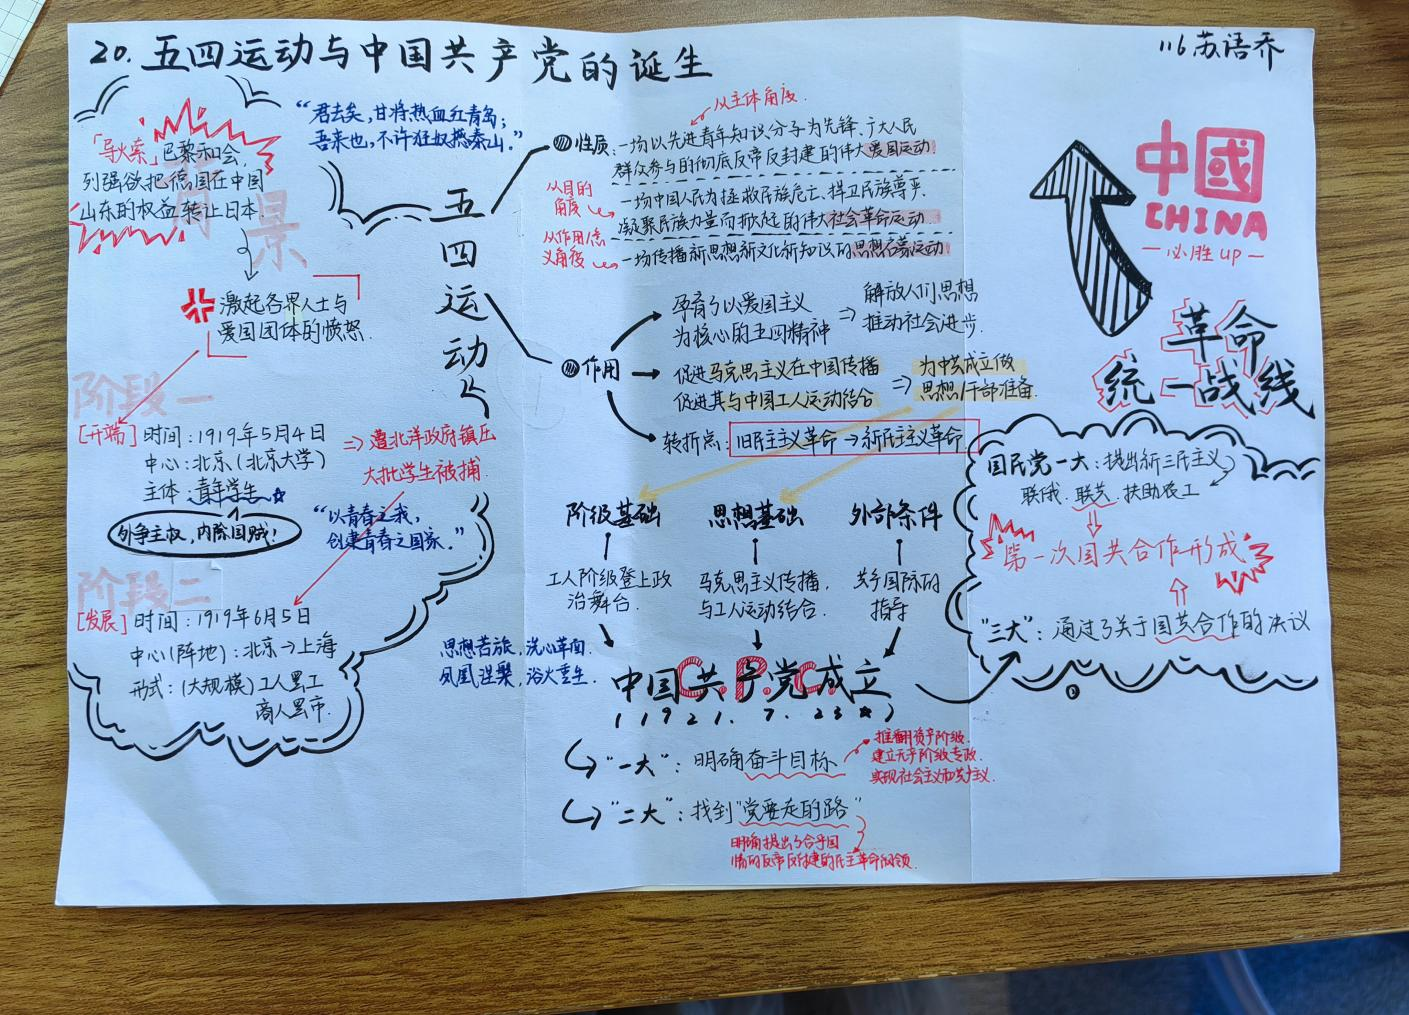 20. 五四运动与中国共产党的诞生
116 苏语乔
背景
「导火索」巴黎和会,
列强欲把德国在中国
山东的权益转让日本.
激起各界人士与
爱国团体的愤怒.
“君去矣,甘将热血红青岛;
吾来也,不许狂奴撼泰山.”
阶段一
[开端] 时间:1919年5月4日
中心:北京(北京大学)
主体:青年学生
外争主权,内除国贼!
⇒ 遭北洋政府镇压
大批学生被捕.
“以青春之我,
创建青春之国家.”
阶段二
[发展] 时间:1919年6月5日
中心(阵地):北京→上海
形式:(大规模)工人罢工
商人罢市.
五四运动
从主体角度.
性质:一场以先进青年知识分子为先锋、广大人民
群众参与的彻底反帝反封建的伟大爱国运动.
从目的
角度
一场中国人民为拯救民族危亡、捍卫民族尊严、
凝聚民族力量而掀起的伟大社会革命运动
从作用/意
义角度
一场传播新思想新文化新知识的思想启蒙运动
作用
孕育了以爱国主义
为核心的五四精神
⇒ 解放人们思想
推动社会进步.
促进马克思主义在中国传播
促进其与中国工人运动结合
⇒ 为中共成立做
思想/干部准备.
转折点:旧民主义革命→新民主义革命
阶级基础 思想基础 外部条件
工人阶级登上政
治舞台.
马克思主义传播,
与工人运动结合.
共产国际的
指导
思想苦旅,洗心革面.
凤凰涅槃,浴火重生.
中国共产党成立
C.P.C.
(1921.7.23)
“一大”:明确奋斗目标
推翻资产阶级.
建立无产阶级专政.
实现社会主义和共产主义.
“二大”:找到“党要走的路”
明确提出了合乎国
情的反帝反封建的民主革命纲领.
中國
CHINA
—必胜up—
革命
统一战线
国民党一大:提出新三民主义
联俄、联共、扶助农工
第一次国共合作形成
“三大”:通过了关于国共合作的决议